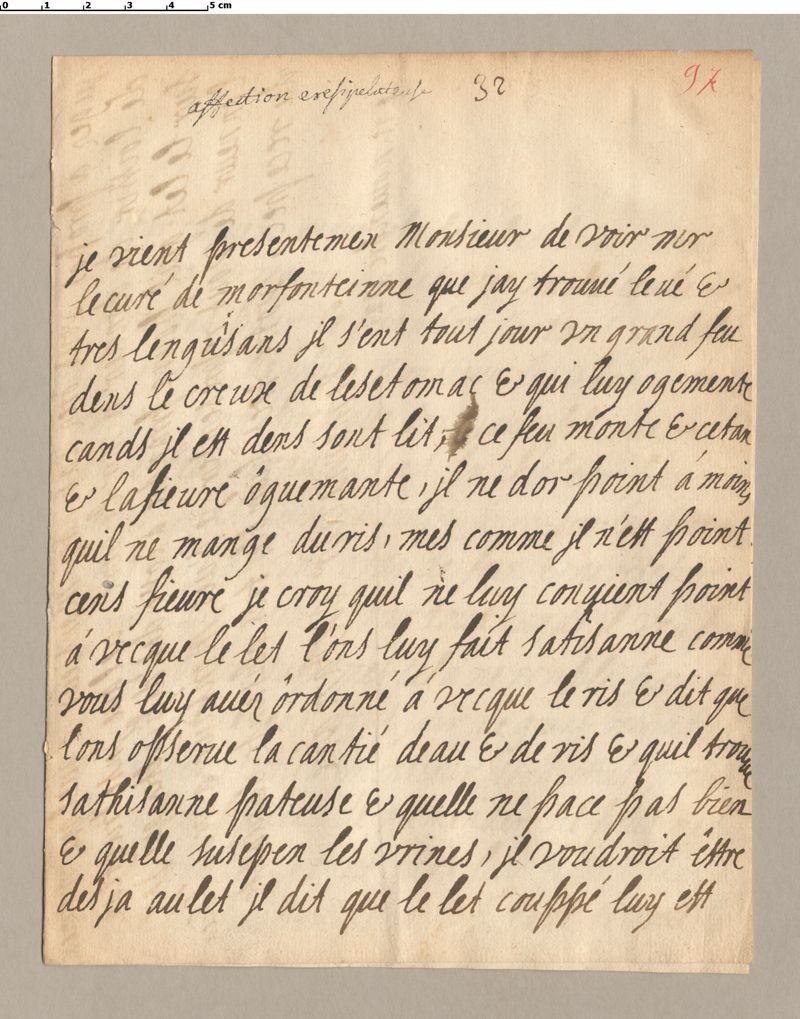 0 1 2 3 4 5 cm
affection eresipelateuse 32 97
je vient presentemen Monsieur de voir mr
le curé de morfonteinne que jay trouvé levé &
tres lengüisans jl s'ent tout jour vn grand feu
dens le creuxe de lesetomac & qui luy ogemente
cands jl est dens sont lit, ce feu monte & cetan
& lafieure ôguemante, jl ne dor point á moins
quil ne mange du ris, mes comme jl n'est point
cens fieure je croy quil ne luy convient point
á vecque le let l'ons luy fait satisanne comme
vous luy avéz ôrdonné á vecque le ris & dit que
l'ons opserue la cantié deau & de ris & quil trouue
sathisanne pateuse & quelle ne pace pas bien
& quelle susepen les vrines, jl voudroit êttre
desja au let jl dit que le let couppé luy est